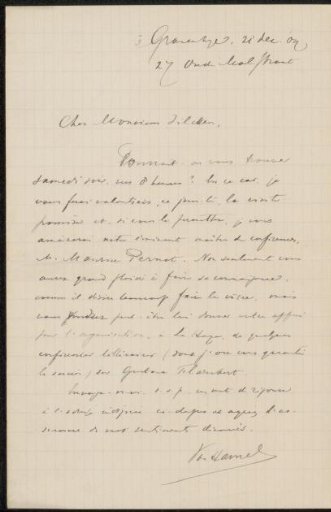 21 Dec.
27 Oude Molstraat
Cher Monsieur Zilcken,
Pourrait-on vous trouver
samedi soir, vers 8 heures? En ce cas, je
vous ferai volontiers, ce jour-là, la visite
promise et, si vous le permettez, je vous
amènerai notre éminent maître de conférences,
M. Maurice Pernot. Non seulement vous
aurez grand plaisir à faire sa connaissance,
comme il désire beaucoup faire la vôtre, mais
vous peut-être lui donner votre appui
pour l'organisation, à la Haye, de quelques
conférences littéraires (dont j'ose vous garantir
le succès) sur Gustave Flaubert.
un mot de réponse
à l'adresse ci-dessus et agréez l'as-
surance de mes sentiments dévoués.
Van Hamel